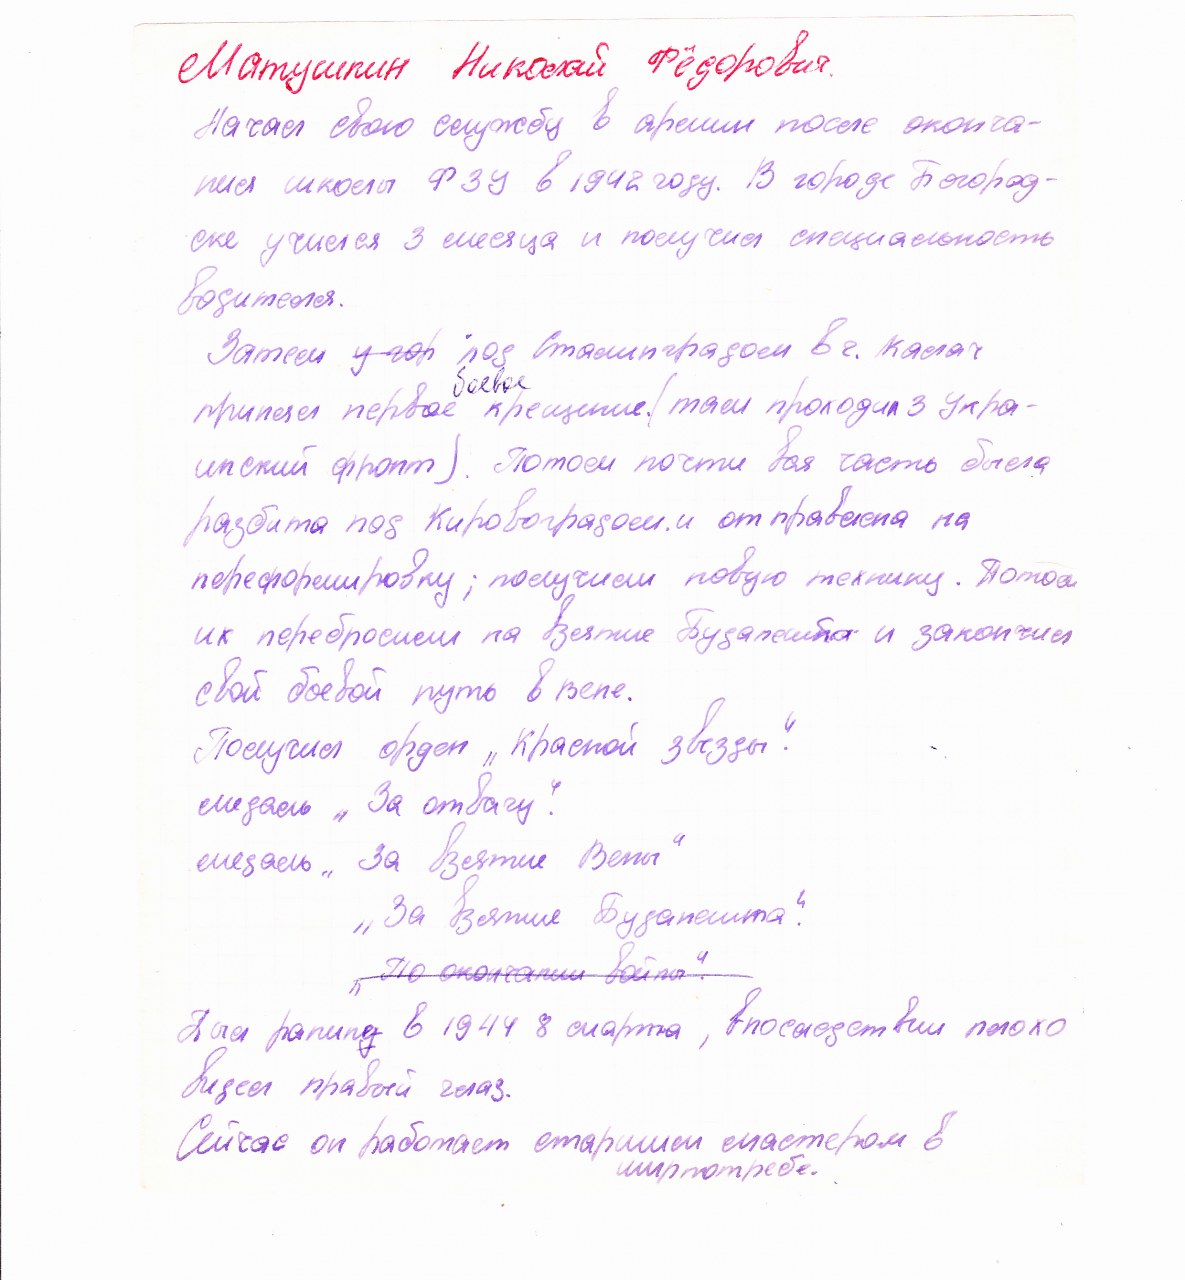 Матушкин Николай Фёдорович.
Начал свою службу в армии после оконча-
ния школы ФЗУ в 1942 году. В городе Богород-
ске учился 3 месяца и получил специальность
водителя.
Затем у гор под Сталинградом в г. Калач
боевое
принял первое крещение. (там проходил 3 Укра-
инский фронт). Потом почти вся часть была
разбита под Кировоградом. и отправлена на
переформировку; получили новую технику. Потом
их перебросили на взятие Будапешта и закончил
свой боевой путь в Вене.
Получил орден „Красной звезды“.
медаль „За отвагу“.
медаль „За взятие Вены“
„За взятие Будапешта“.
„По окончании войны“.
Был ранен в 1944 8 марта, впоследствии плохо
видел правый глаз.
Сейчас он работает старшим мастером в
ширпотребе.